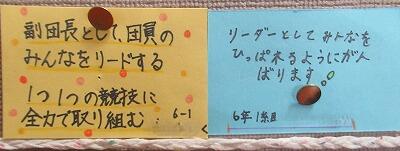 副団長として、団員の
みんなをリードする
1つ1つの競技に
全力で取り組む
6-1
リーダーとしてみんなを
ひっぱれるようにがん
ばります。
6年1組